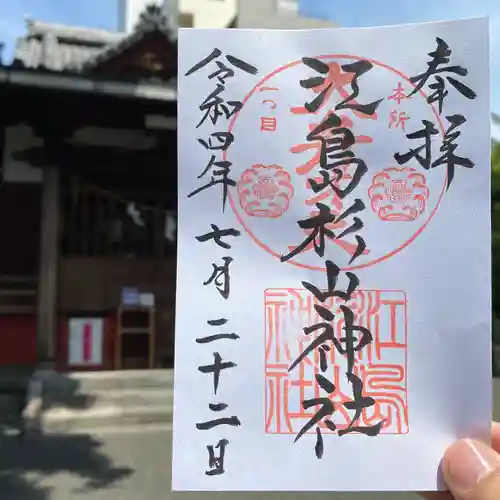 奉拝
本所
一つ目
江島杉山神社
江島杉山神社
令和四年
七月
二十二日